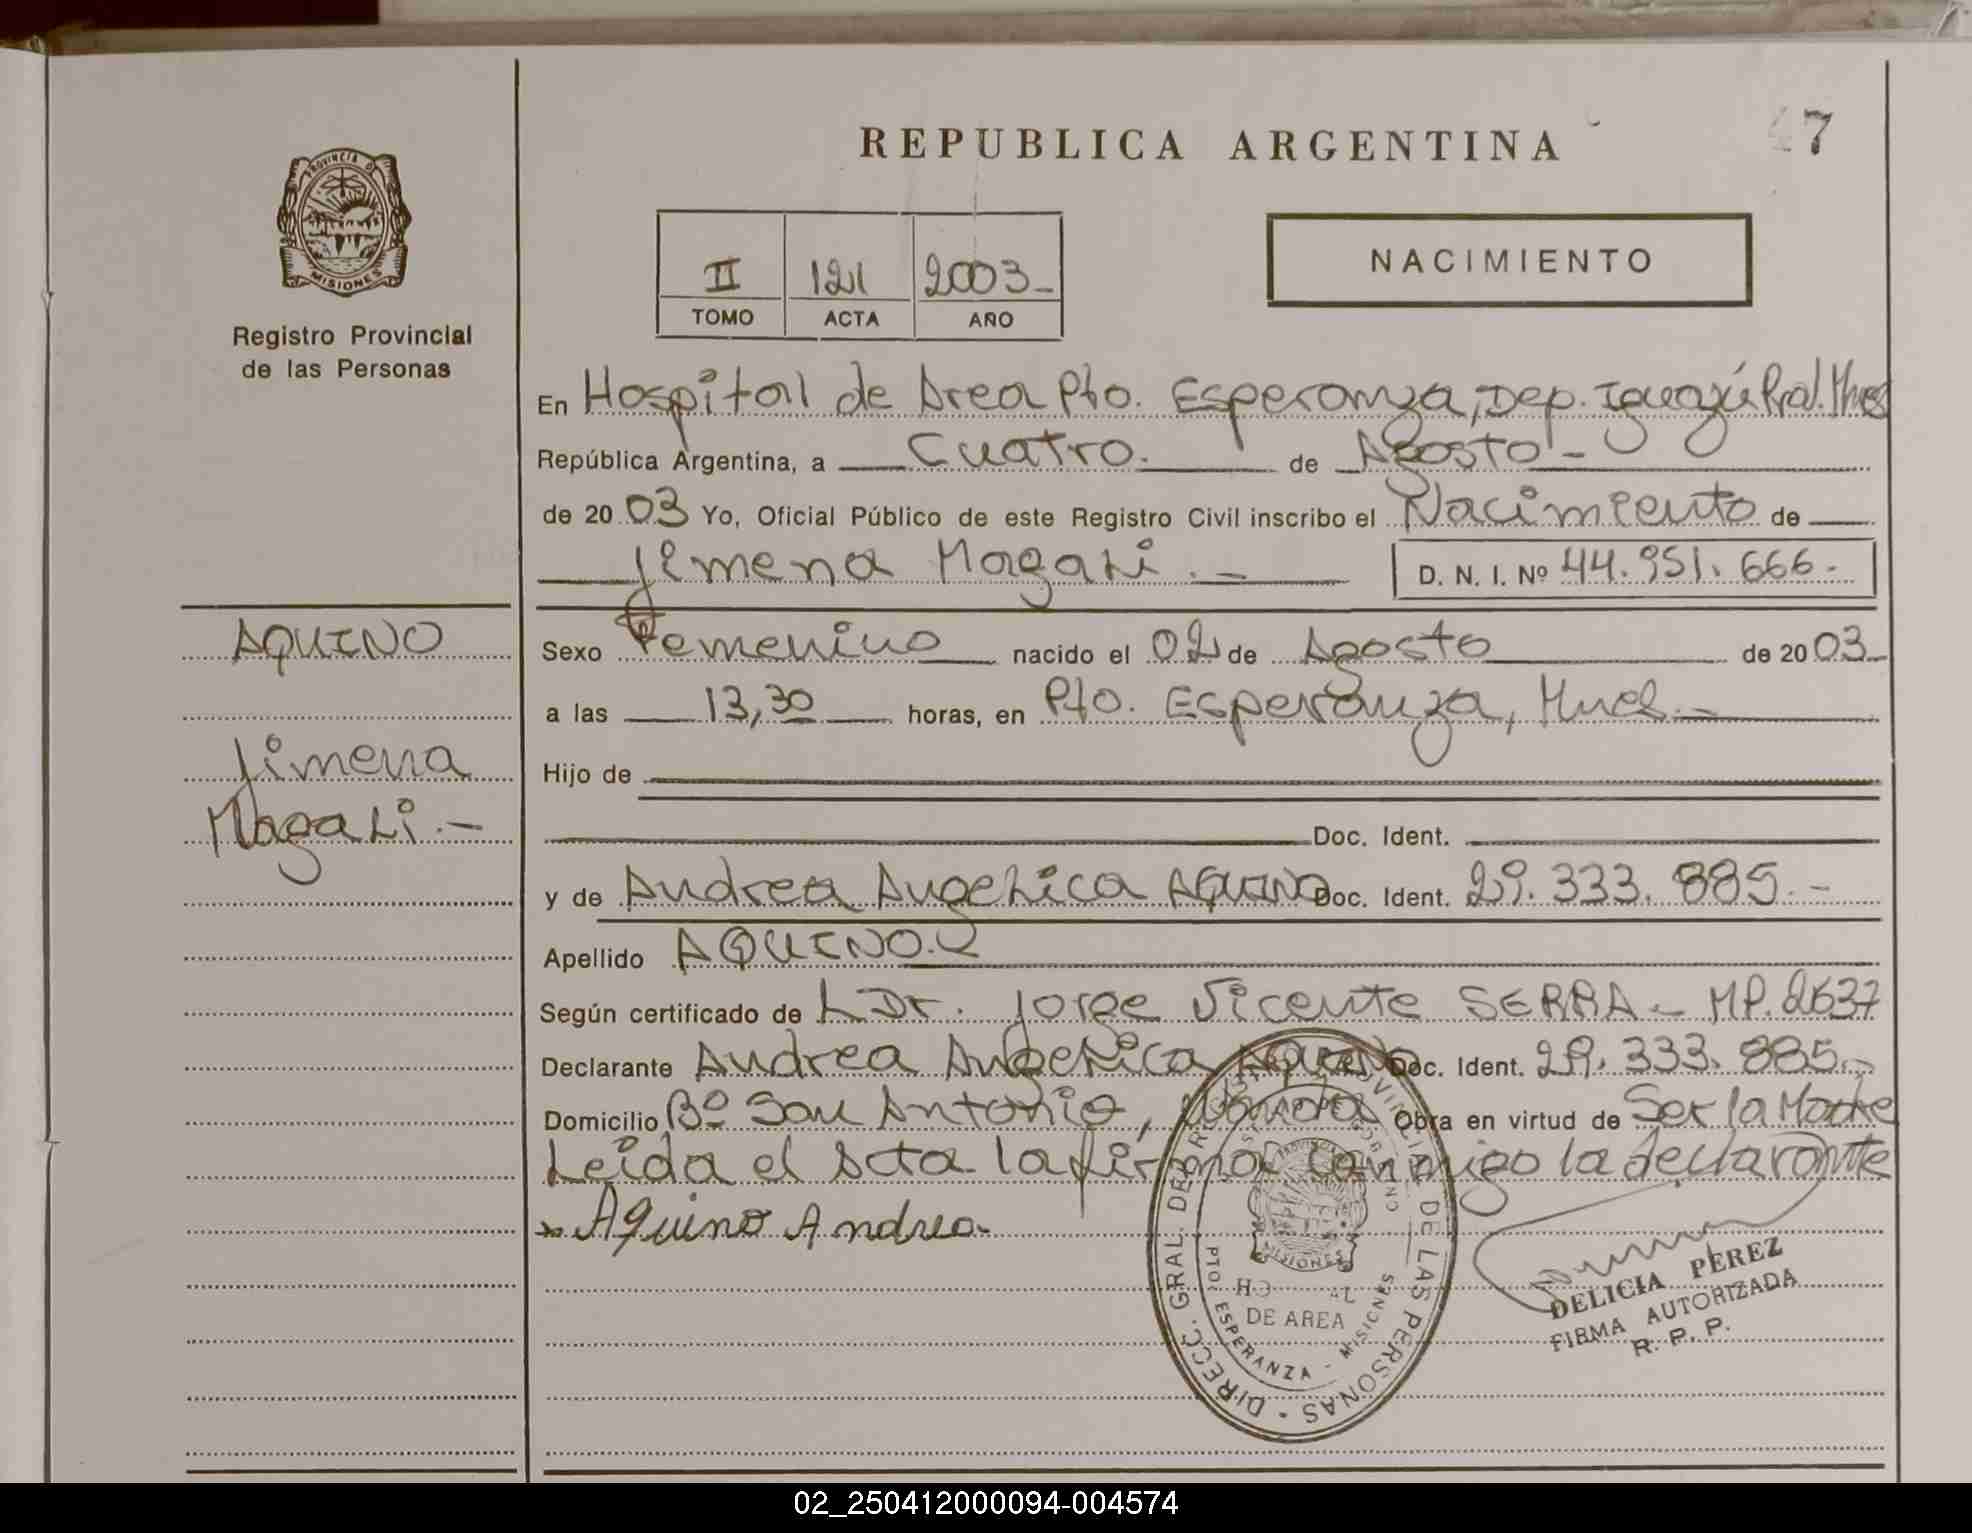 REPUBLICA ARGENTINA
47
PROVINCIA DE
MISIONES
Registro Provincial
de las Personas
II 121 2003_
TOMO ACTA AÑO
NACIMIENTO
En Hospital de Area Pto. Esperanza, Dep. Iguazú Pcia. Mnes
República Argentina, a Cuatro. de Agosto -
de 2003 Yo, Oficial Público de este Registro Civil inscribo el Nacimiento de
Jimena Magali. - D. N. I. Nº 44.951.666-
AQUINO
Jimena
Magali. -
Sexo Femenino nacido el 02 de Agosto de 2003
a las 13,30 horas, en Pto. Esperanza, Mnes. -
Hijo de
Doc. Ident.
y de Andrea Angelica AQUINO Doc. Ident. 29.333.885. -
Apellido AQUINO.
Según certificado de Dr. Jorge Vicente SERRA - MP. 2637
Declarante Andrea Angelica Aquino Doc. Ident. 29.333.885.-
Domicilio Bº San Antonio, Wanda Obra en virtud de Ser la Madre
Leida el Acta la firma conmigo la declarante
x Aquino Andrea.
DIRECC. GRAL. DE PROVINCIAL DE LAS PERSONAS
MISIONES
DE AREA
PTO. ESPERANZA - MISIONES
DELICIA PEREZ
FIRMA AUTORIZADA
R. P. P.
02_250412000094-004574